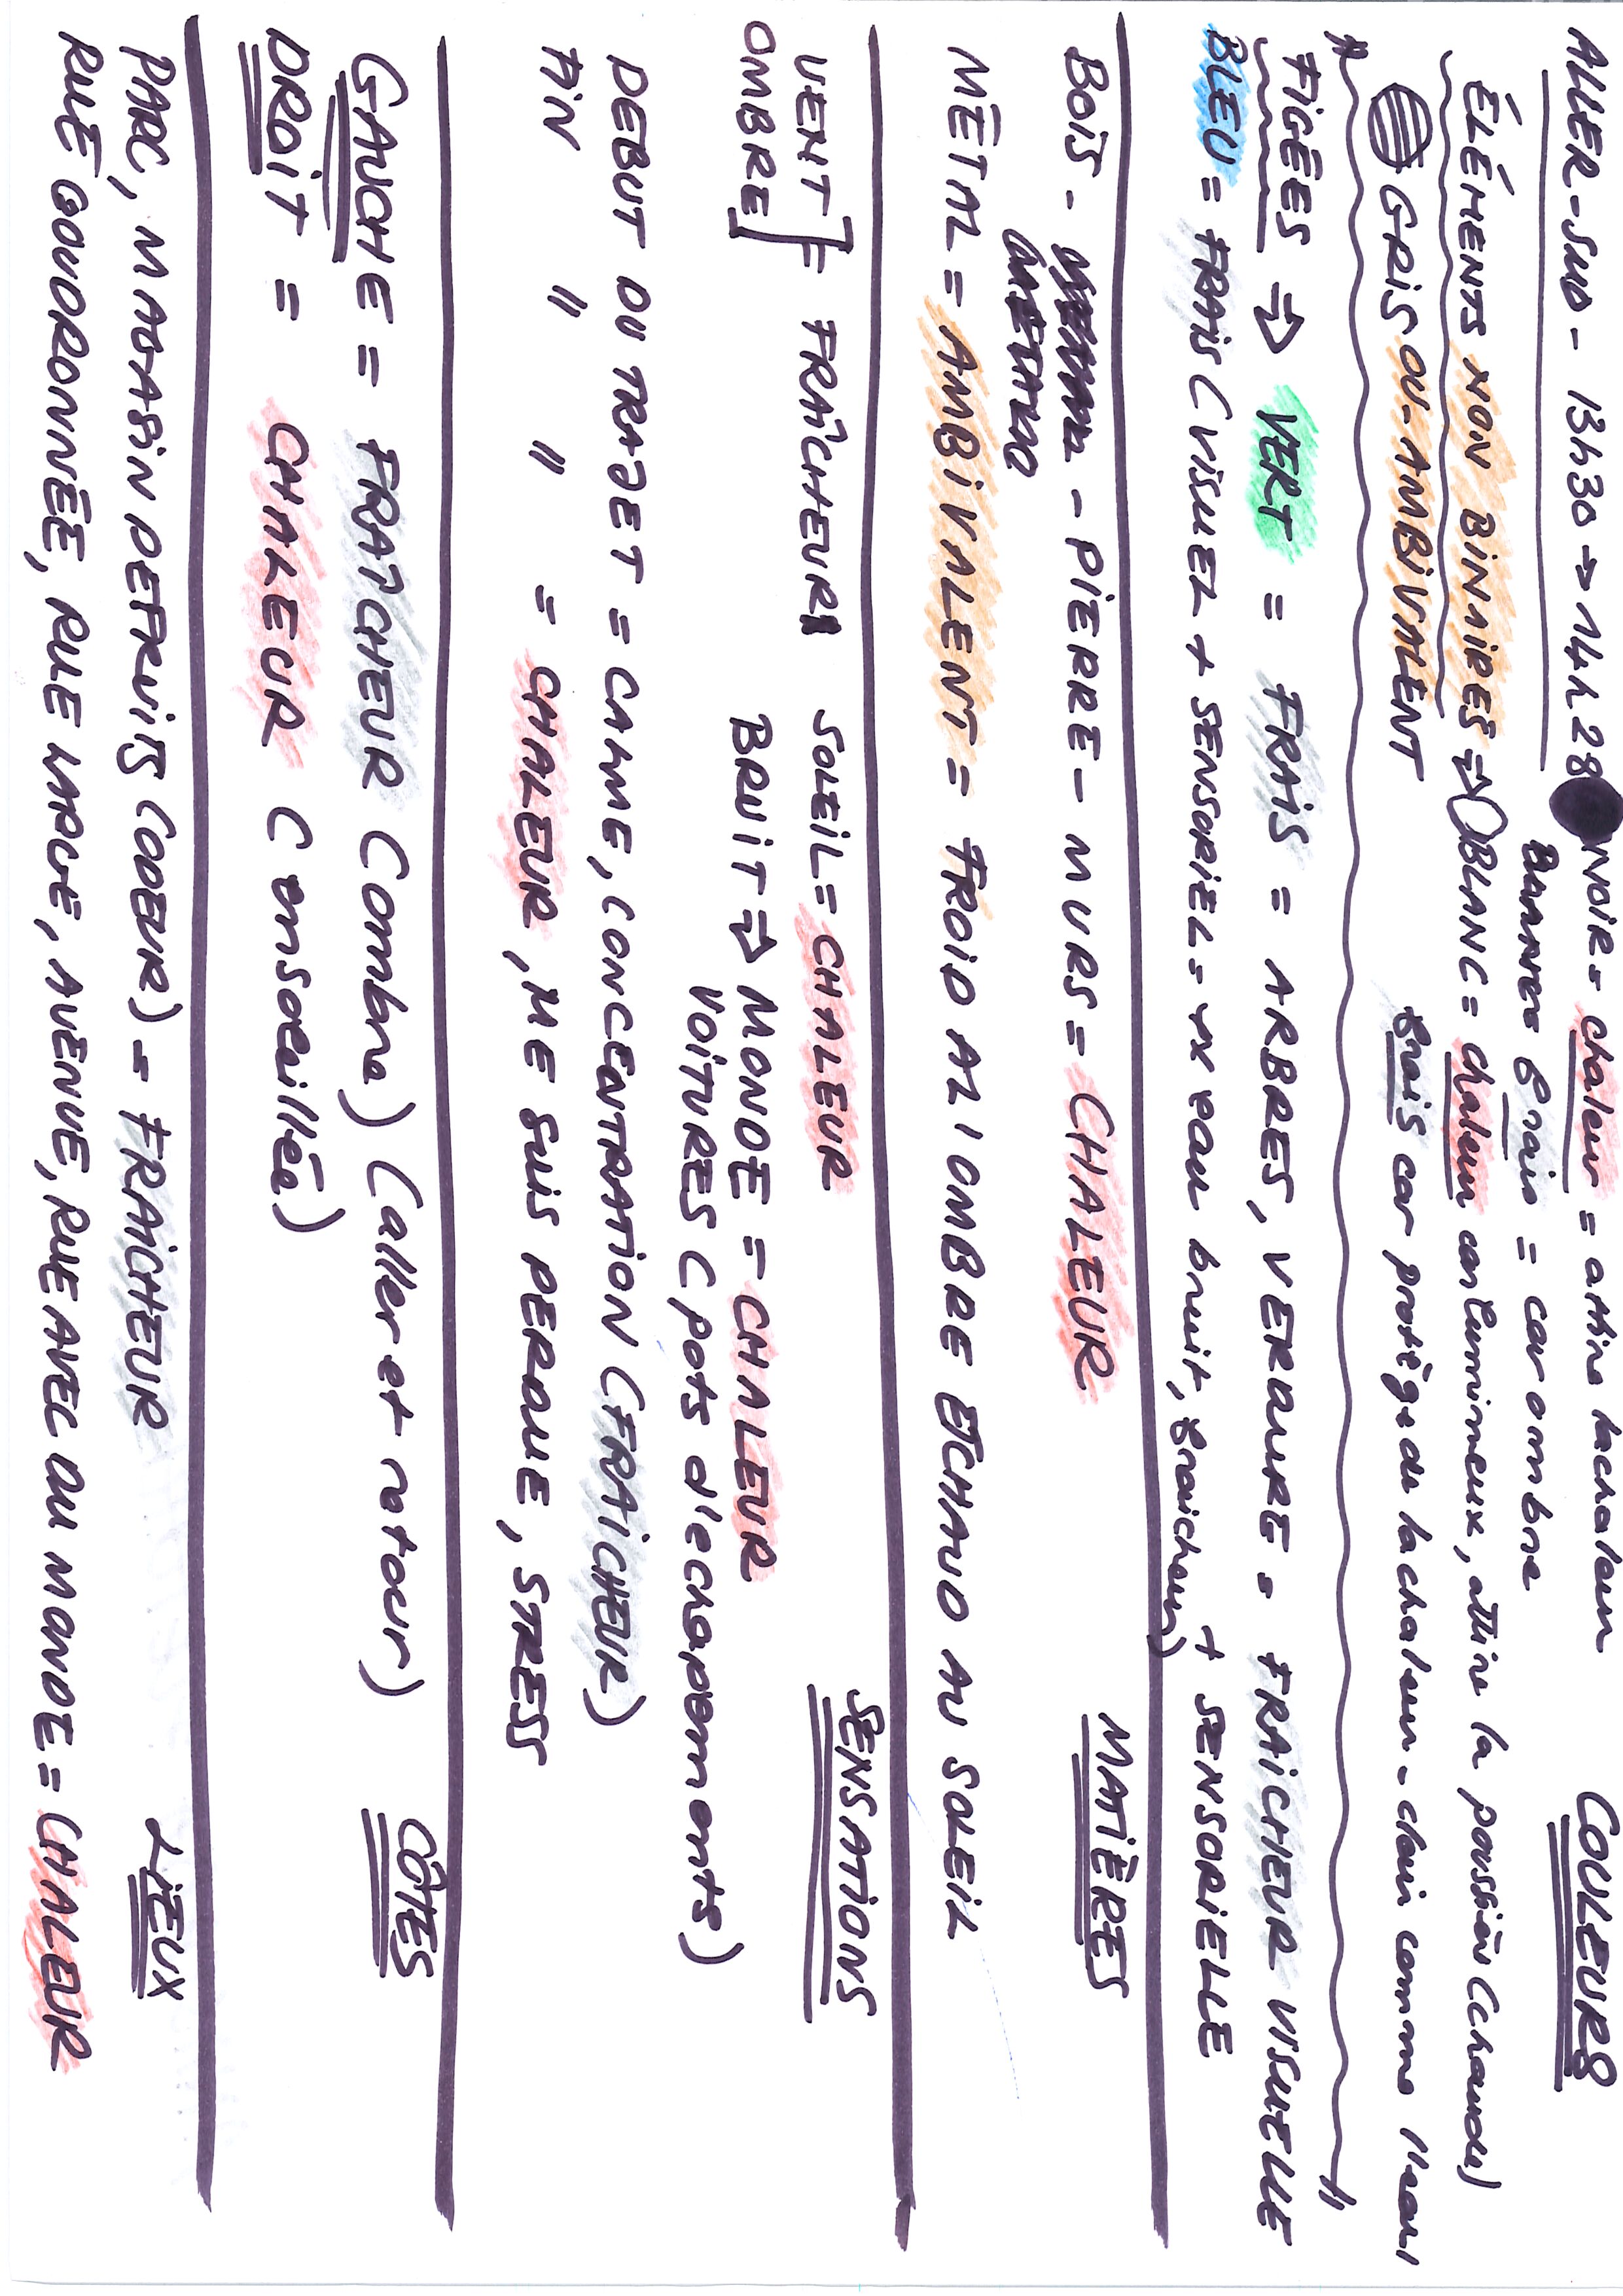 ALLER-SUD - 13h30 → 14h28
COULEURS
NOIR = chaleur = attire lachaleur
frais = car ombre
ÉLÉMENTS NON BINAIRES ⇒ BLANC = chaleur car lumineux, attire la poussière (chaude)
GRIS OU-AMBIVALENT frais car protège de la chaleur - clair comme l'eau
FIGÉES ⇒ VERT = FRAIS = ARBRES, VERDURE = FRAICHEUR VISUELLE
+ SENSORIELLE
BLEU = FRAIS (VISUEL + SENSORIEL = eau bruit, fraicheur)
MATIÈRES
BOIS - - PIERRE - MURS = CHALEUR
MÉTAL = AMBIVALENT = FROID A L'OMBRE ET CHAUD AU SOLEIL
SENSATIONS
VENT ] = FRAÎCHEUR SOLEIL = CHALEUR
OMBRE ] BRUIT ⇒ MONDE = CHALEUR
VOITURES (pots d'echapements)
DEBUT DU TRAJET = CALME, CONCENTRATION (FRAICHEUR)
FIN " " = CHALEUR, ME SUIS PERDUE, STRESS
CÔTÉS
GAUCHE = FRAICHEUR (ombre) (aller et retour)
DROIT = CHALEUR (ensoleillée)
LIEUX
PARC, MAGASIN DEFRUITS (ODEUR) = FRAICHEUR
RUE GOUDRONNÉE, RUE LARGE, AVENUE, RUE AVEC DU MONDE = CHALEUR